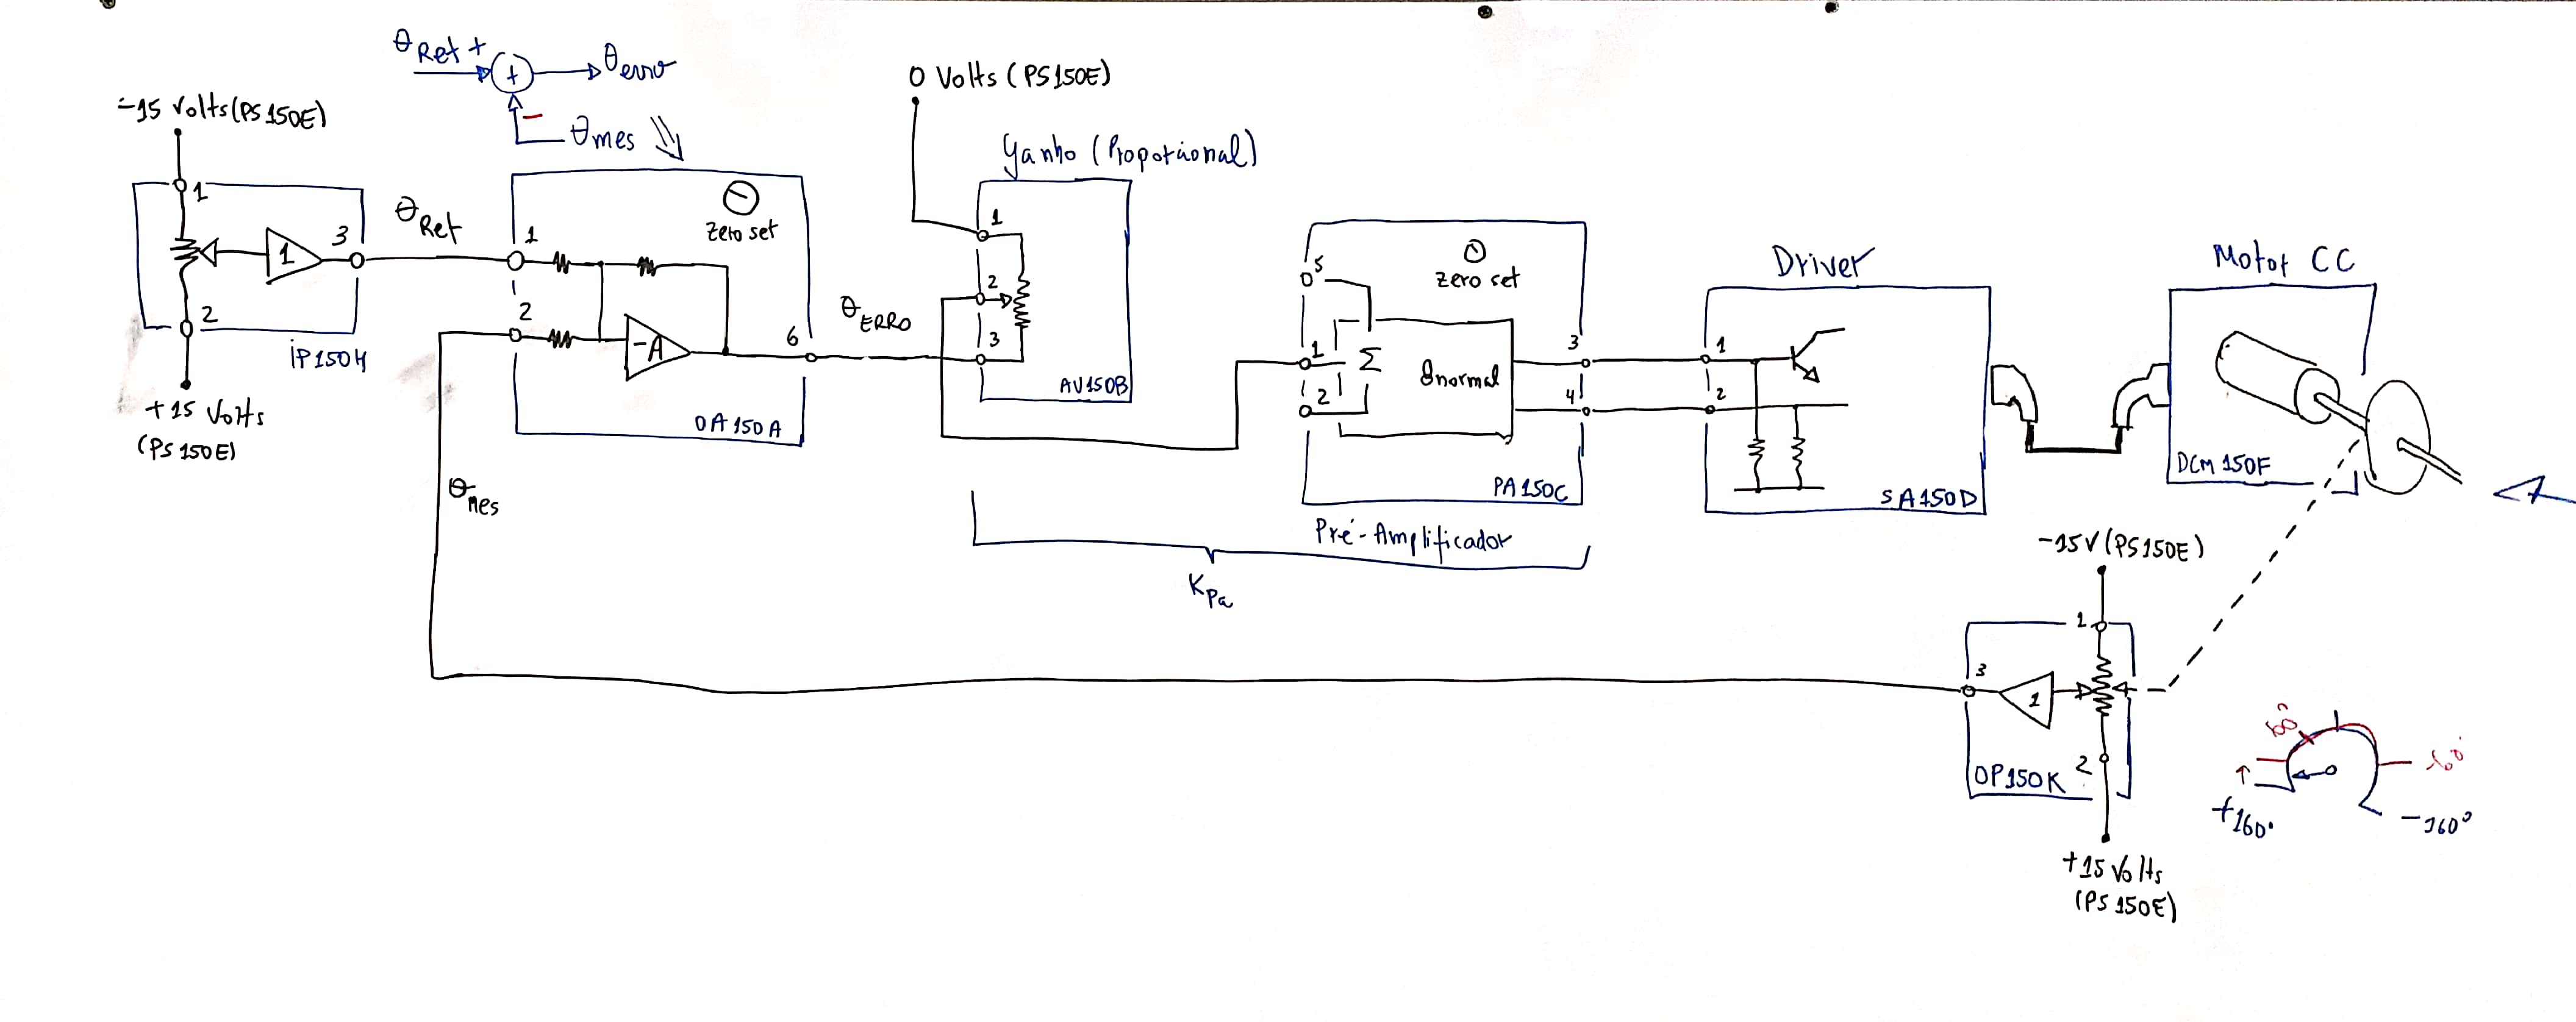 θRef +
+
θerro
−
θmes
-15 Volts (PS150E)
1
1
3
2
iP150H
+15 Volts
(PS150E)
θRef
zero set
1
2
-A
6
OA150A
θmes
θERRO
0 Volts (PS150E)
Ganho (Proporcional)
1
2
3
AV150B
zero set
5
1
2
Σ
normal
3
4
PA150C
Pré-Amplificador
KPa
Driver
1
2
SA150D
Motor CC
DCM150F
-15V (PS150E)
1
3
1
2
OP150K
+15 Volts
(PS150E)
+160°
-160°